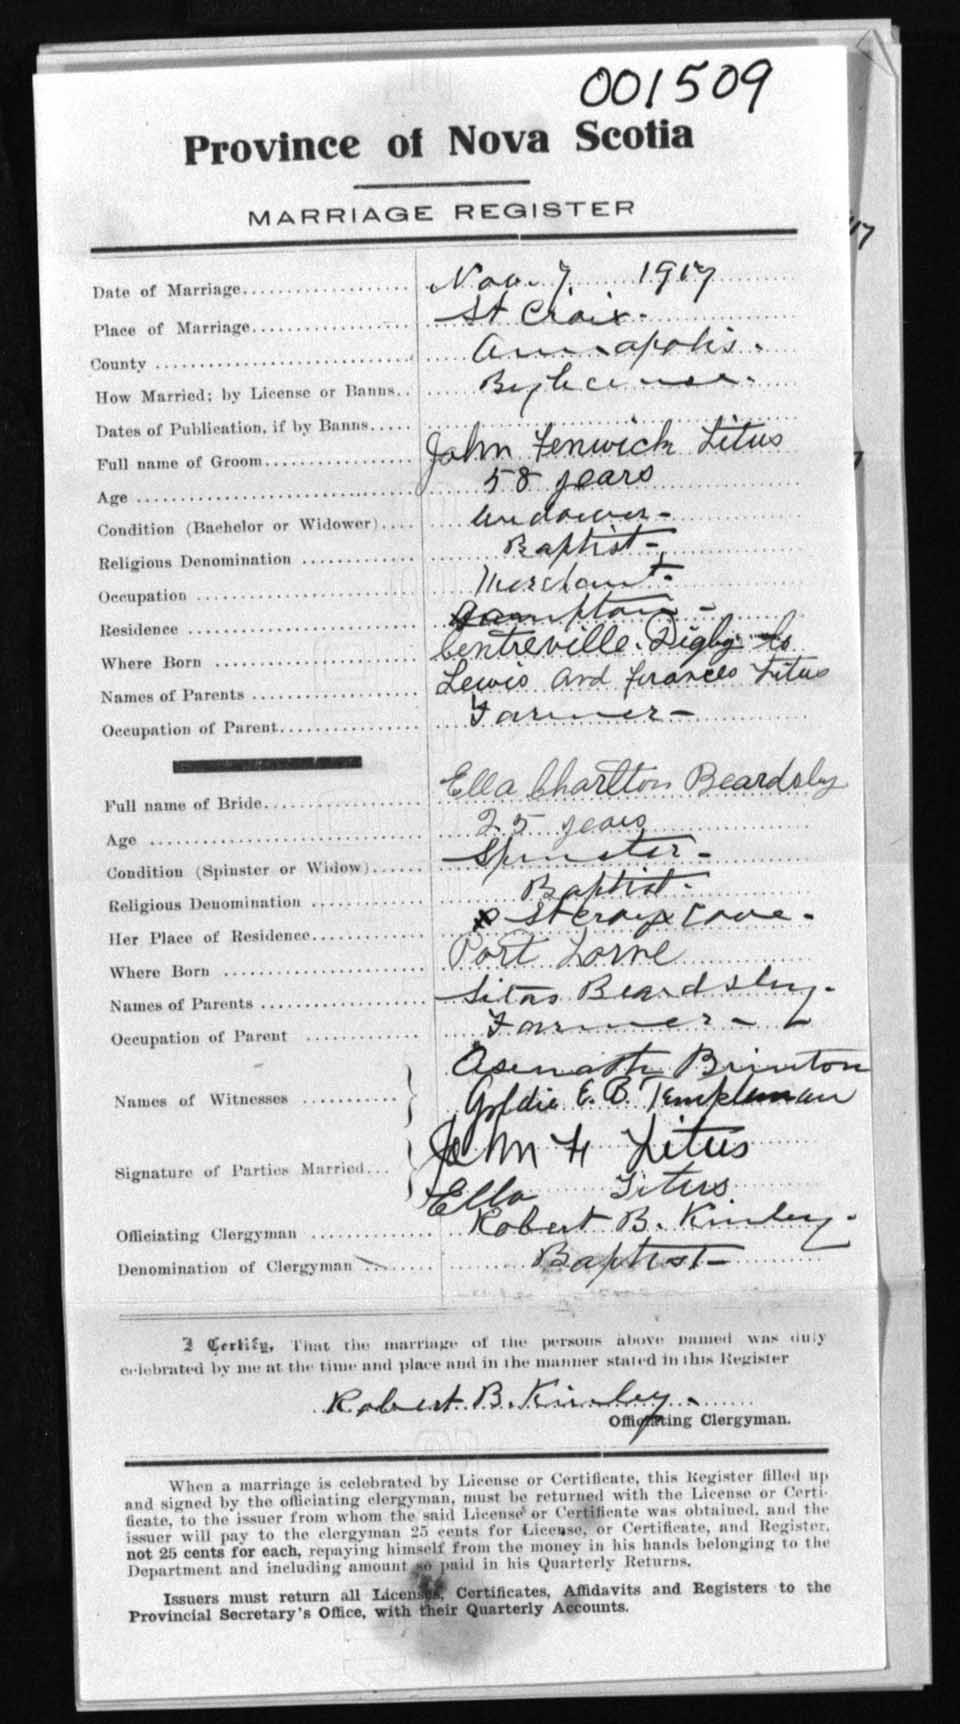 001509
Province of Nova Scotia
MARRIAGE REGISTER
Date of Marriage Nov. 7 1917
Place of Marriage St Croix.
County Annapolis.
How Married; by License or Banns By license.
Dates of Publication, if by Banns
Full name of Groom John Fenwick Titus
Age 58 years
Condition (Bachelor or Widower) Widower-
Religious Denomination Baptist-
Occupation Merchant.
Residence Hampton-
Where Born Centreville. Digby Co
Names of Parents Lewis and Frances Titus
Occupation of Parent Farmer-
Full name of Bride Ella Charlton Beardsley
Age 25 years
Condition (Spinster or Widow) Spinster-
Religious Denomination Baptist.
Her Place of Residence St Croix Cove.
Where Born Port Lorne
Names of Parents Beardsley.
Occupation of Parent Farmer-
Names of Witnesses Asenath Brinton
Goldie E. B. Templeman
Signature of Parties Married John F Titus
Ella Titus
Officiating Clergyman Robert B. Kinley.
Denomination of Clergyman Baptist-
I Certify, That the marriage of the persons above named was duly
celebrated by me at the time and place and in the manner stated in this Register
Robert B. Kinley.
Officiating Clergyman.
When a marriage is celebrated by License or Certificate, this Register filled up
and signed by the officiating clergyman, must be returned with the License or Certi-
ficate, to the issuer from whom the said License or Certificate was obtained, and the
issuer will pay to the clergyman 25 cents for License, or Certificate, and Register,
not 25 cents for each, repaying himself from the money in his hands belonging to the
Department and including amount so paid in his Quarterly Returns.
Issuers must return all Licenses, Certificates, Affidavits and Registers to the
Provincial Secretary's Office, with their Quarterly Accounts.